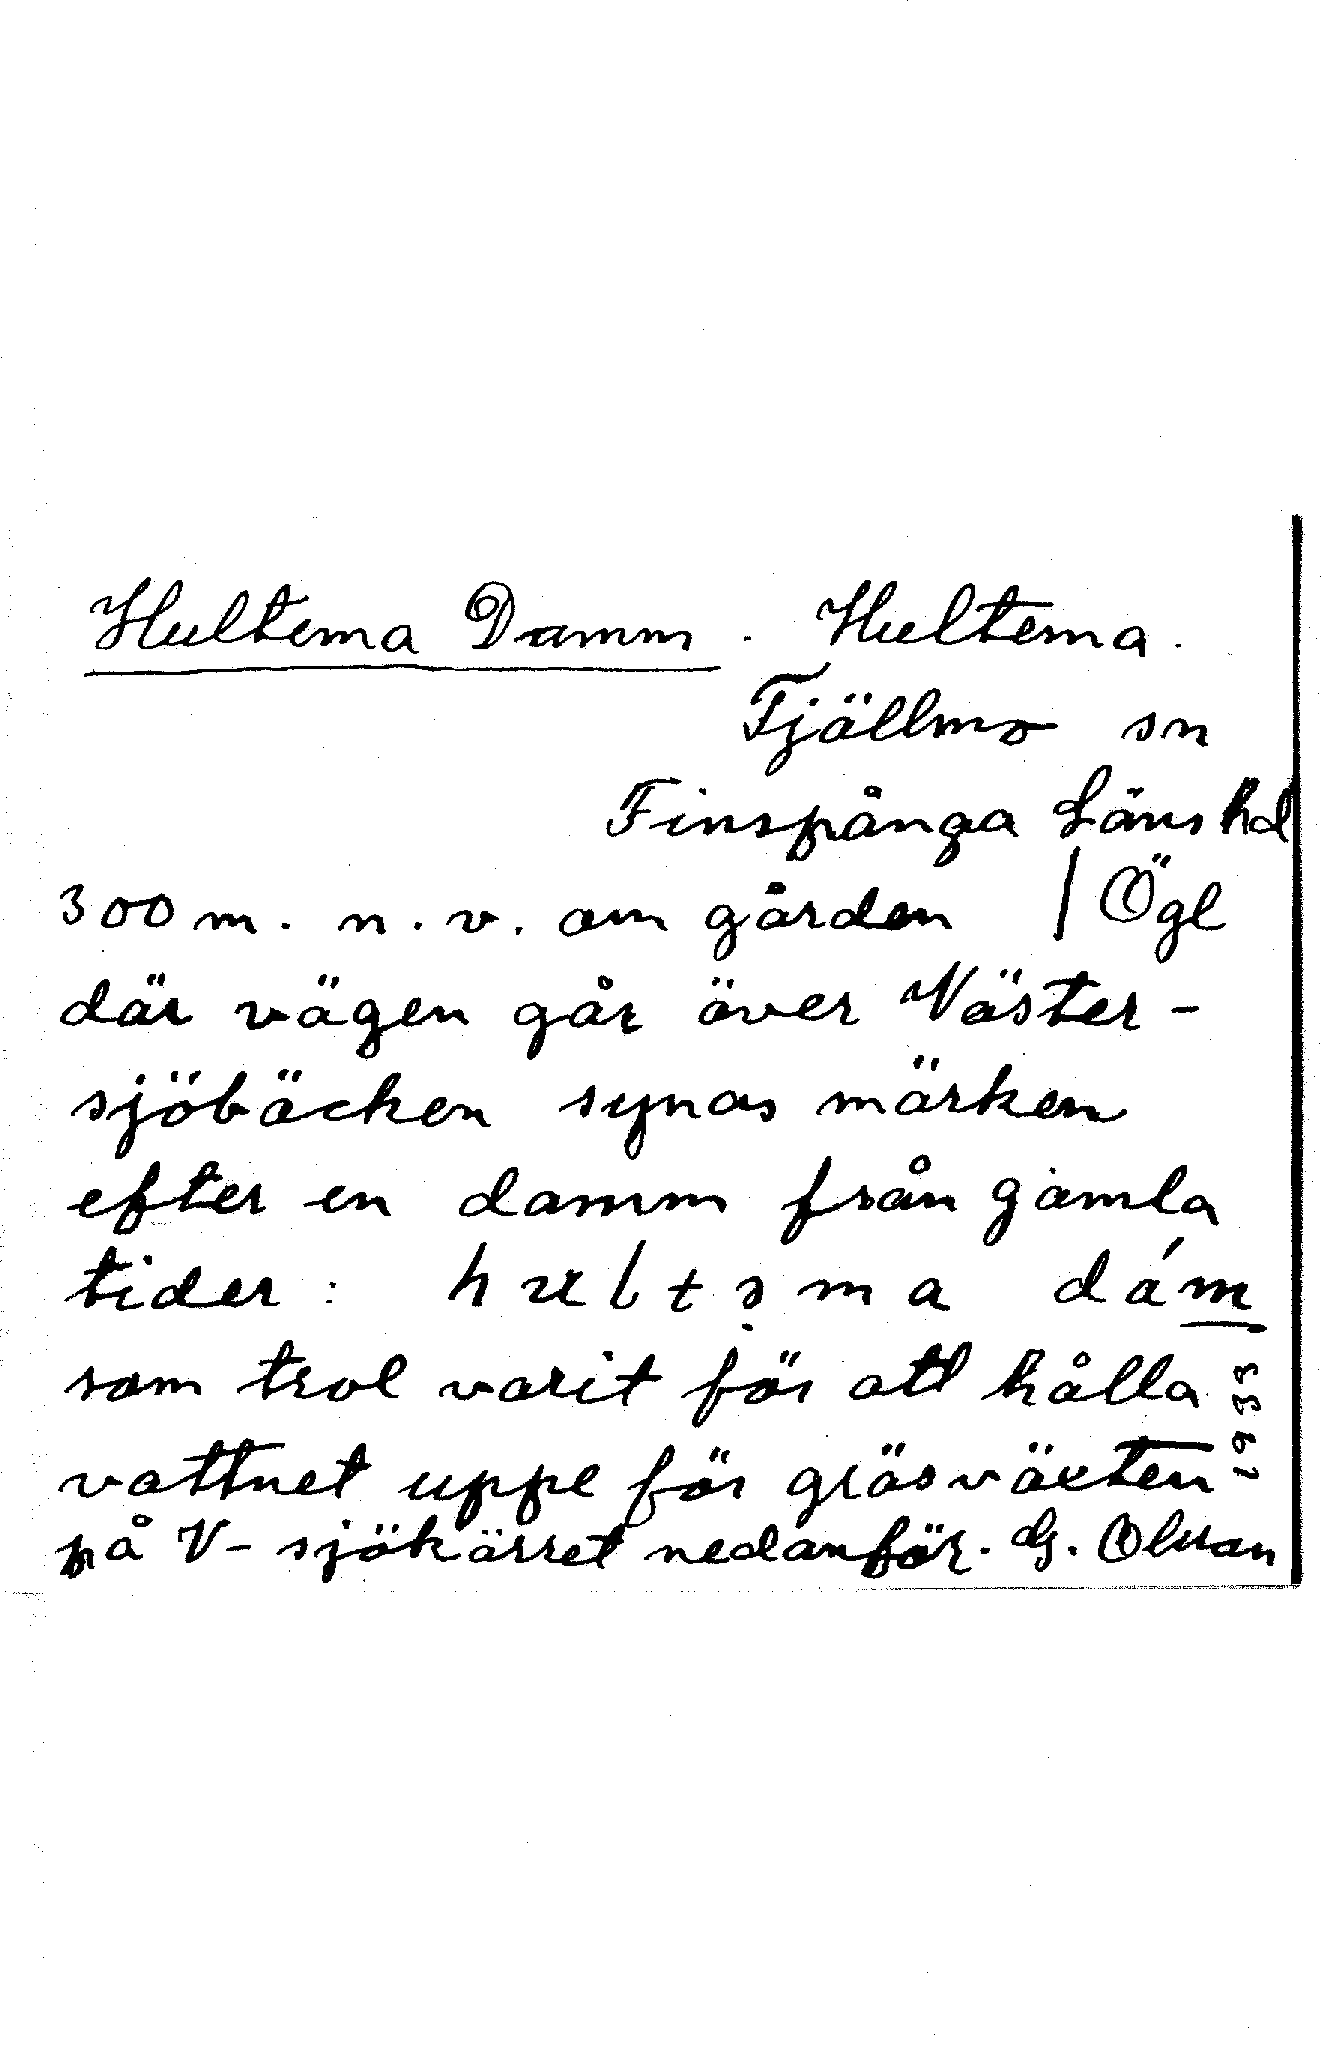 Hultema Damm. Hultema.
Tjällmo sn
Finspånga Läns hd
300 m. n. v. om gården / Ögl
där vägen går över Väster-
sjöbäcken synas märken
efter en damm från gamla
tider: hultəma dám
som trol varit för att hålla
vattnet uppe för gräsväxten
på V-sjökärret nedanför. G. Olsson
1933